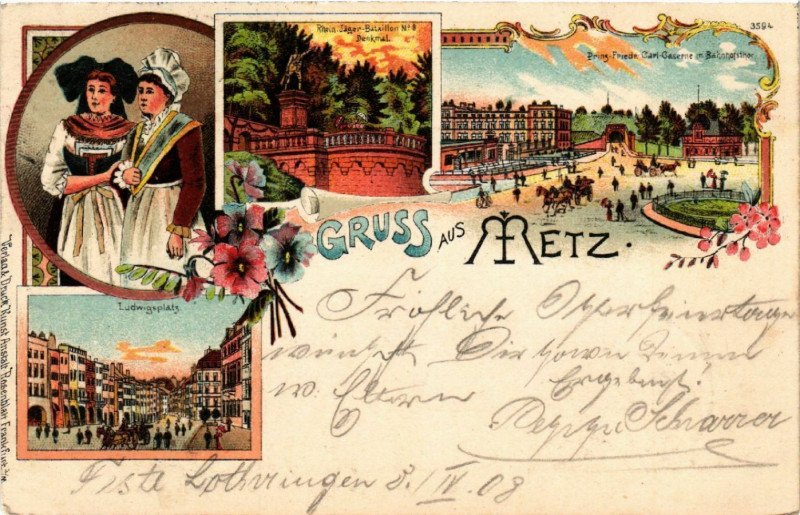 Rhein. Jäger-Bataillon Nº 8
Denkmal.
3594
Prinz-Friedr. Carl-Caserne m. Bahnhofsthor
GRUSS AUS METZ.
Ludwigsplatz
Verlag & Druck Kunst Anstalt Rosenblatt Frankfurt a/M.
Fröhliche Osterfeiertage
wünscht Dir sowie Deinen
w. Eltern Ergebenst.
Scharrer
Lothringen 8./IV. 08